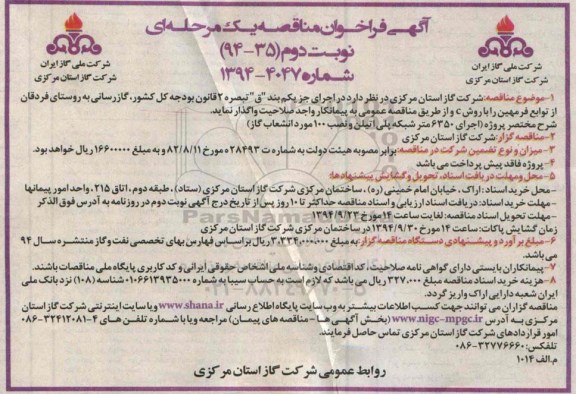 آگهی فراخوان مناقصه یک مرحله ای
نوبت دوم (۳۵-۹۴)
شماره ۴۰۴۷-۱۳۹۴
شرکت ملی گاز ایران
شرکت گاز استان مرکزی
شرکت ملی گاز ایران
شرکت گاز استان مرکزی
۱-موضوع مناقصه: شرکت گاز استان مرکزی در نظر دارد در اجرای جزء یکم بند "ق" تبصره ۲ قانون بودجه کل کشور، گازرسانی به روستای فردقان
از توابع فرمهین را با روش c و از طریق مناقصه عمومی به پیمانکار واجد صلاحیت واگذار نماید.
شرح مختصر پروژه (اجرای ۶۳۵۰ متر شبکه پلی اتیلن و نصب ۱۰۰ مورد انشعاب گاز)
۲-مناقصه گزار: شرکت گاز استان مرکزی
۳-میزان و نوع تضمین شرکت در مناقصه: برابر مصوبه هیئت دولت به شماره ت ۲۸۴۹۳ه مورخ ۸۲/۸/۱۱ و به مبلغ ۱۶۶۰۰۰۰۰۰ ریال خواهد بود.
۴-پروژه فاقد پیش پرداخت می باشد
۵-محل و مهلت دریافت اسناد، تحویل و گشایش پیشنهادها:
-محل خرید اسناد: اراک، خیابان امام خمینی (ره)، ساختمان مرکزی شرکت گاز استان مرکزی (ستاد)، طبقه دوم، اتاق ۲۱۵، واحد امور پیمانها
-مهلت خرید اسناد: دریافت اسناد ارزیابی و اسناد مناقصه حداکثر تا ۱۰ روز پس از تاریخ درج آگهی نوبت دوم در روزنامه به آدرس فوق الذکر
-مهلت تحویل اسناد مناقصه: لغایت ساعت ۱۴ مورخ ۱۳۹۴/۹/۲۳
زمان گشایش پاکات: ساعت ۱۴ مورخ ۱۳۹۴/۹/۳۰ در ساختمان مرکزی شرکت گاز استان مرکزی
۶-مبلغ برآورد و پیشنهادی دستگاه مناقصه گزار: به مبلغ ۳,۳۳۴,۰۰۰,۰۰۰ ریال براساس فهارس بهای تخصصی نفت و گاز منتشره سال ۹۴
می باشد.
۷-پیمانکاران بایستی دارای گواهی نامه صلاحیت، کد اقتصادی و شناسه ملی اشخاص حقوقی ایرانی و کد کاربری پایگاه ملی مناقصات باشند.
۸-هزینه خرید اسناد مناقصه مبلغ ۳۲۷,۰۰۰ ریال می باشد که لازم است به حساب سیبا به شماره ۰۱۰۶۶۱۳۹۳۵۰۰۰ شناسه (۱۰۸) نزد بانک ملی
ایران شعبه دارایی اراک واریز گردد.
مناقصه گزاران می توانند جهت کسب اطلاعات بیشتر به وب سایت پایگاه اطلاع رسانی www.shana.ir و یا سایت اینترنتی شرکت گاز استان
مرکزی به آدرس www.nigc-mpgc.ir (بخش آگهی ها - مناقصه های پیمان) مراجعه و یا با شماره تلفن های ۴-۳۲۴۱۲۰۸۱-۰۸۶
امور قراردادهای شرکت گاز استان مرکزی تماس حاصل فرمایند.
تلفکس: ۳۲۷۷۶۶۶۰-۰۸۶
م.الف ۱۰۱۴
روابط عمومی شرکت گاز استان مرکزی